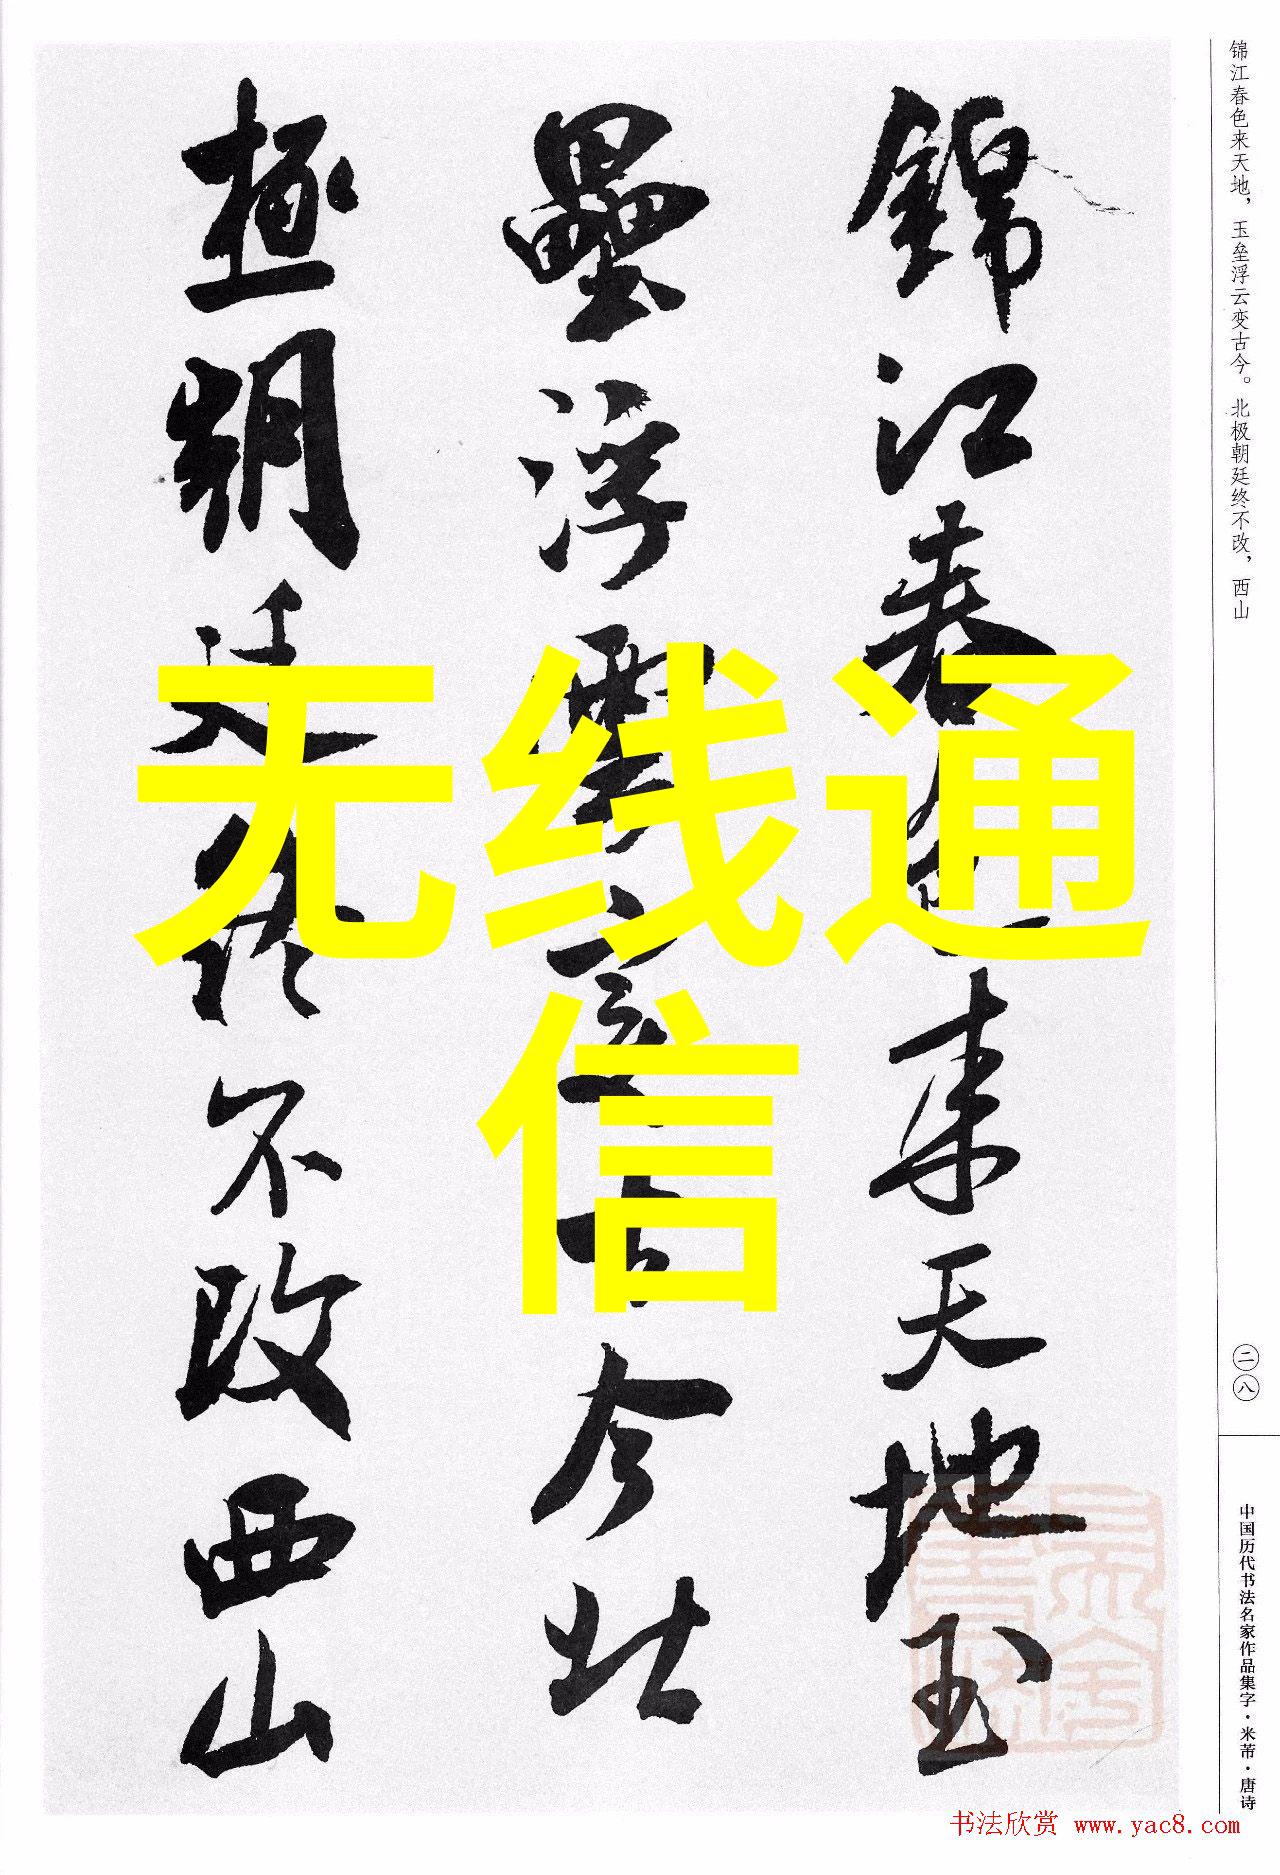 锦江春色来天地，玉垒浮云变古今。北极朝廷终不改，西山
錦江春色来天地玉
壘浮雲變古今北
極朝廷終不改西山
无线通
信
二八
中国历代书法名家作品集字·米芾·唐诗
书法欣赏 www.yac8.com